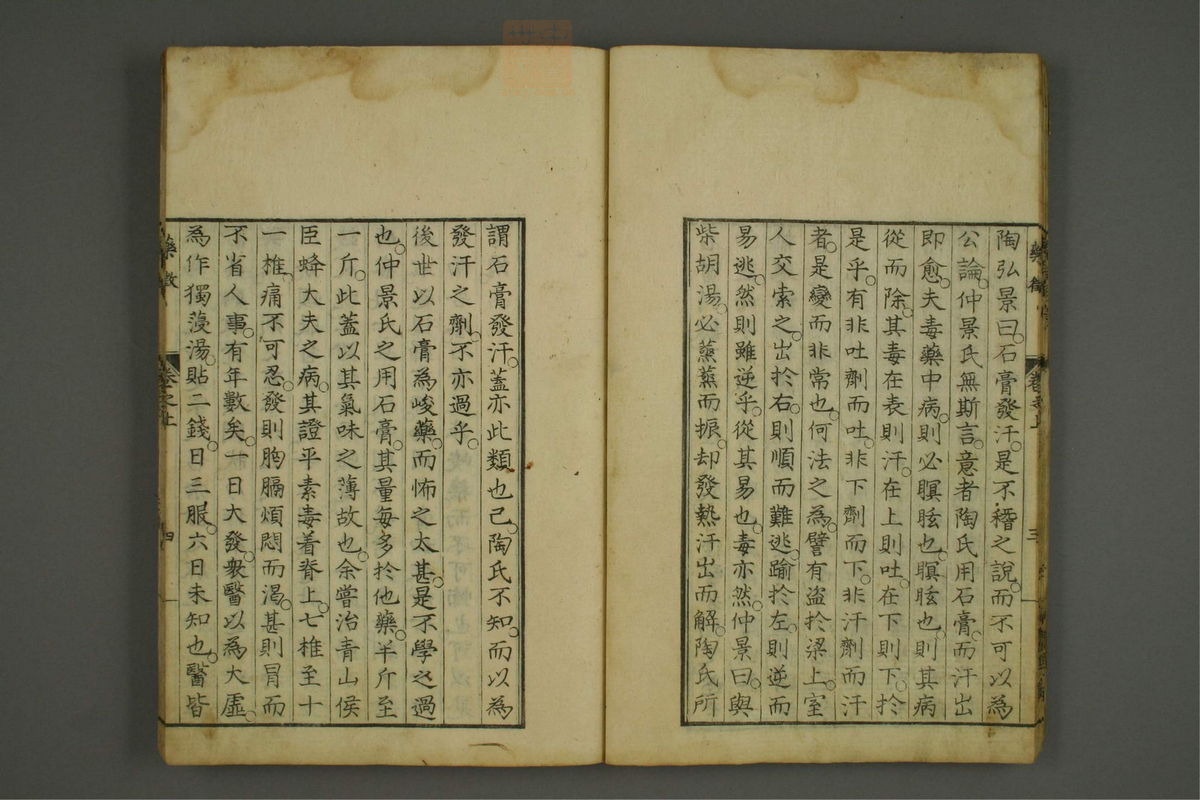 陶弘景曰。石膏發汗。是不稽之說。而不可以為
公論。仲景氏無斯言。意者陶氏用石膏。而汗出
即愈。夫毒藥中病。則必瞑眩也。瞑眩也。則其病
從而除。其毒在表則汗。在上則吐。在下則下。於
是乎。有非吐劑而吐。非下劑而下。非汗劑而汗
者。是變而非常也。何法之為。譬有盜於梁上。室
人交索之。出於右。則順而難逃。踰於左。則逆而
易逃。然則雖逆乎。從其易也。毒亦然。仲景曰。與
柴胡湯。必蒸蒸而振。却發熱汗出而解。陶氏所
藥徵
卷之上
三
謂石膏發汗。蓋亦此類也已。陶氏不知。而以為
發汗之劑。不亦過乎。
後世以石膏為峻藥。而怖之太甚。是不學之過
也。仲景氏之用石膏。其量每多於他藥。半斤至
一斤。此蓋以其氣味之薄故也。余嘗治青山侯
臣蜂大夫之病。其證平素毒着脊上。七椎至十
一椎。痛不可忍。發則胸膈煩悶而渴。甚則冒而
不省人事。有年數矣。一日大發。衆醫以為大虛。
為作獨蓡湯。貼二錢。日三服。六日未知也。醫皆
藥徵
卷之上
四